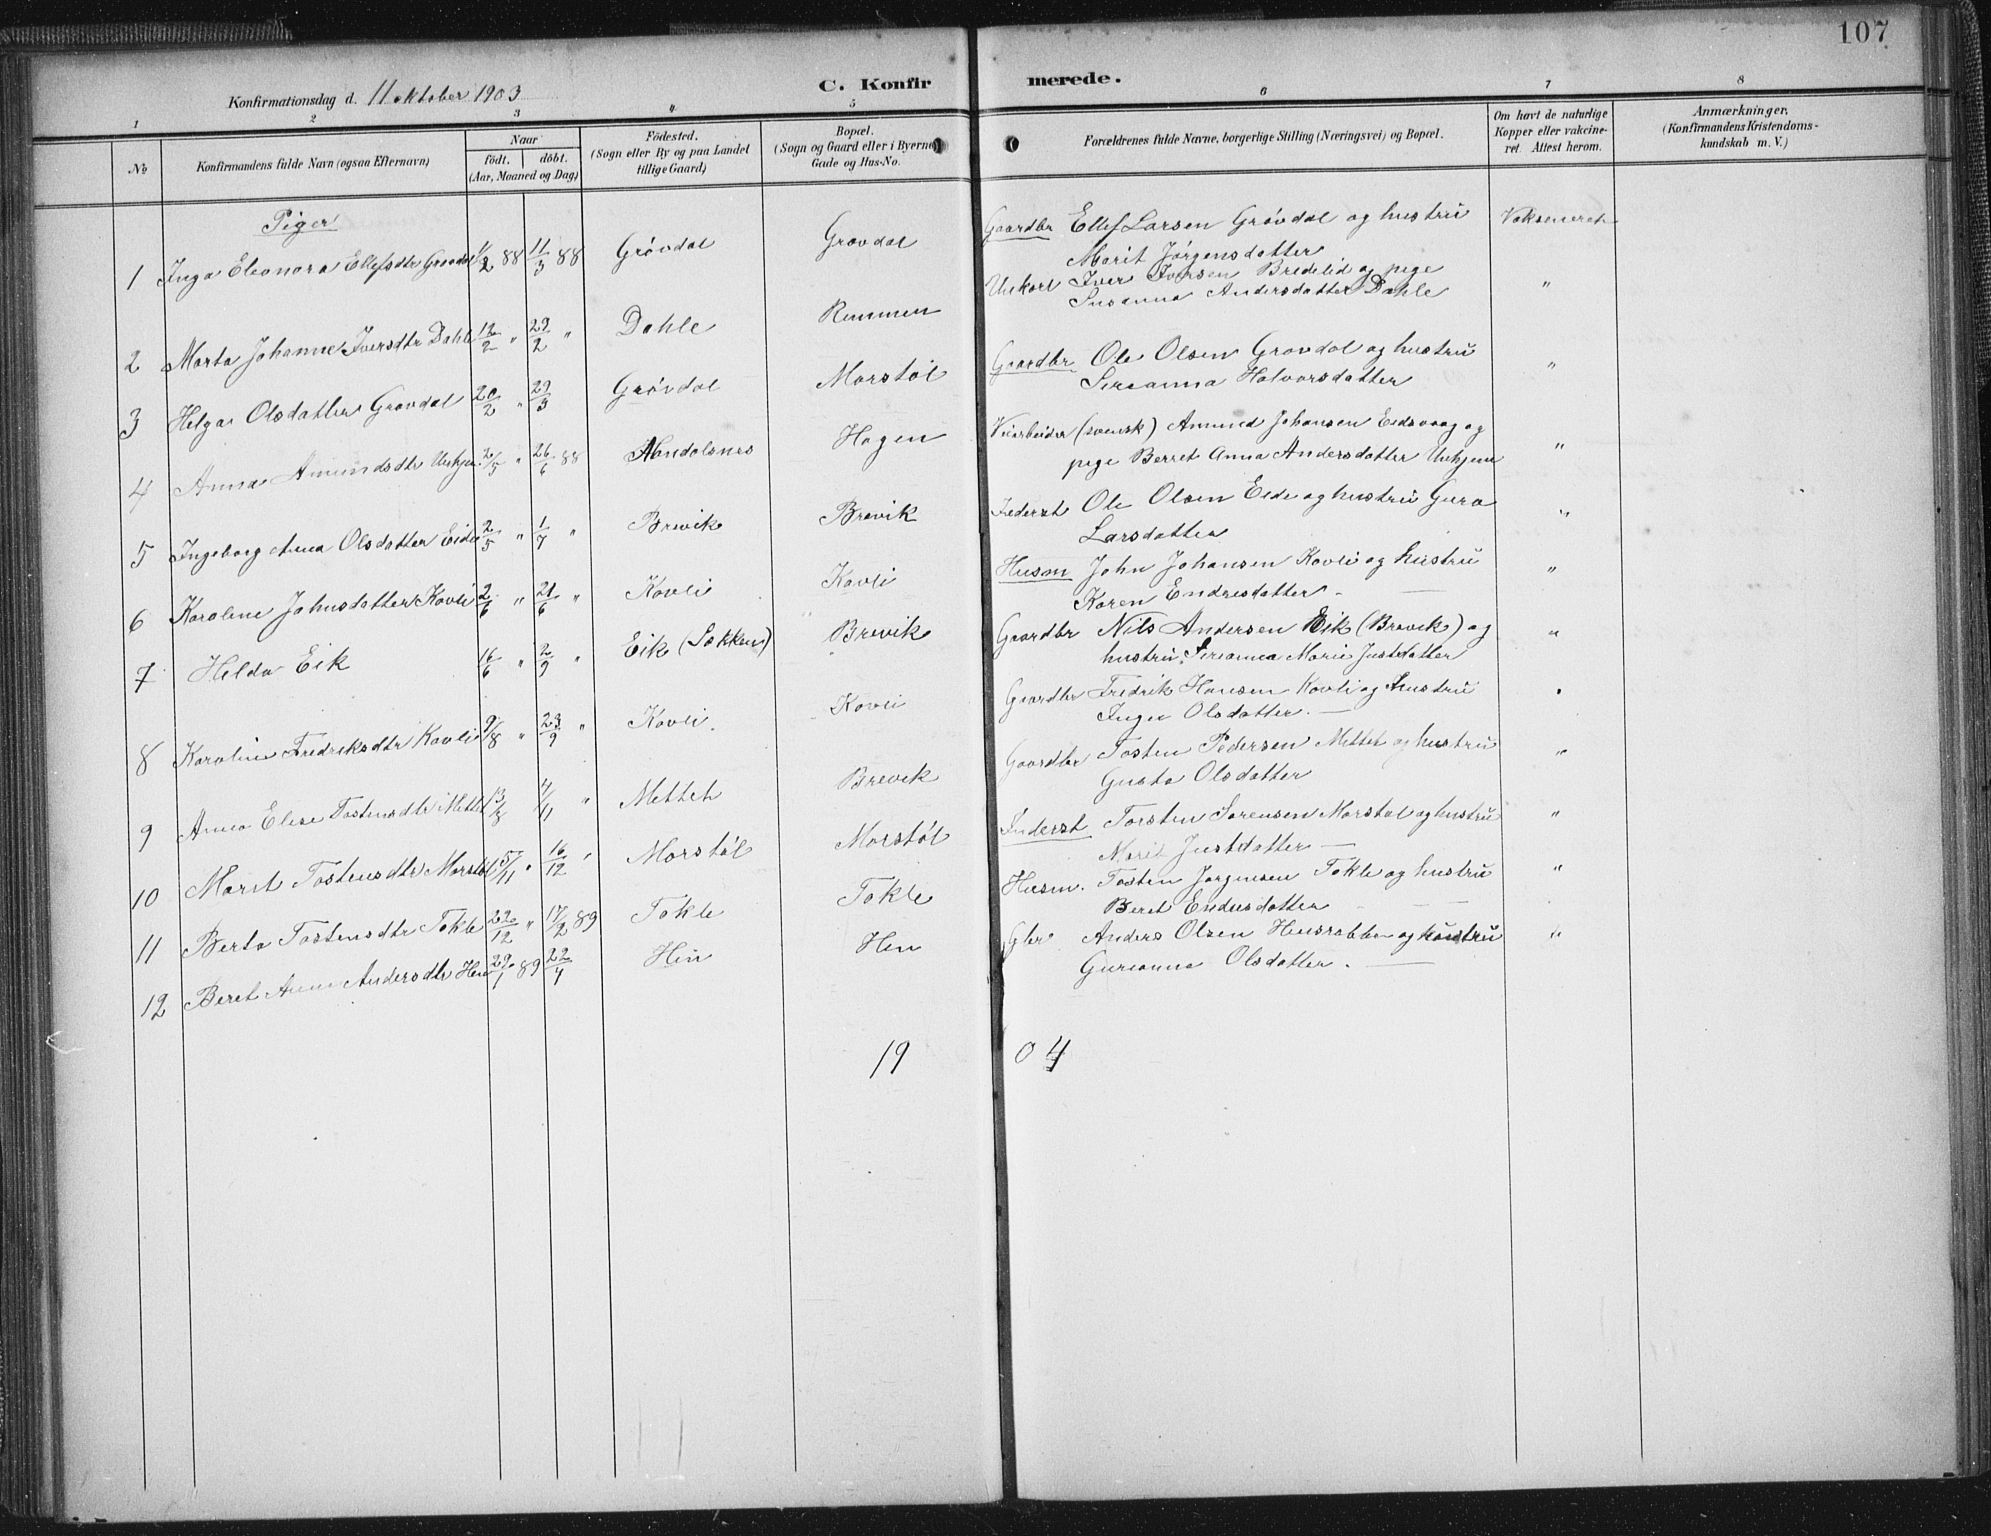 107
C. Konfirmerede.
Konfirmationsdag d. 11 oktober 1903
1 2 3 4 5 6 7 8
№
Konfirmandens fulde Navn (ogsaa Efternavn)
Naar
født. døbt.
(Aar, Maaned og Dag)
Fødested.
(Sogn eller By og paa Landet
tillige Gaard)
Bopæl.
(Sogn og Gaard eller i Byerne
Gade og Hus-No.
Forældrenes fulde Navne, borgerlige Stilling (Næringsvei) og Bopæl.
Om havt de naturlige
Kopper eller vakcine-
ret. Attest herom.
Anmærkninger.
(Konfirmandens Kristendoms-
kundskab m. V.)
Piger
1 Inga Eleonora Ellefsdtr Grøvdal 88 11/3 88 Grøvdal Grøvdal Gaardbr Ellef Larsen Grøvdal og hustru
Marit Jørgensdatter
2 Marta Johanne Iversdtr Dahle 12/2 " 29/2 " Dahle Remmen Unkarl Iver Iversen Bredelid og pige
Susanna Andersdatter Dahle "
3 Helga Olsdatter Grøvdal 20/2 " 29/3 Grøvdal Morstøl Gaardbr. Ole Olsen Grøvdal og hustru
Sirianna Halvorsdatter "
4 Anna Amundsdtr 2/5 " 26/6 88 Nandalsnes Hagen Veiarbeider (svensk) Amund Johansen Eidsvaag og
pige Berret Anna Andersdatter Unhjem "
5 Ingeborg Anna Olsdatter Eide 2/5 " 1/7 " Brevik Brevik Inderst Ole Olsen Eide og hustru Guro
Larsdatter "
6 Karoline Johnsdatter Kavli 2/6 " 21/6 " Kavli Kavli Husm John Johansen Kavli og hustru
Karen Endresdatter - "
7 Helda Eik 16/6 " 2/9 " Eik (Løkken) Brevik Gaardbr Nils Andersen Eik (Brevik) og
hustru Sirianna Marie Justdatter "
8 Karoline Fredriksdtr Kavli 9/8 " 23/9 " Kavli Kavli Gaardbr Fredrik Hansen Kavli og hustru
Inger Olsdatter. -
9 Anna Elise Tostensdtr Mittet 13/8 4/11 " Mittet Brevik Gaardbr Tosten Pedersen Mittet og hustru
Gusta Olsdatter "
10 Marit Tostensdtr Morstøl 5/11 " 16/12 " Morstøl Morstøl Inderst Torsten Sørensen Morstøl og hustru
Marit Justdatter - "
11 Berta Tostensdtr Tokle 22/12 " 17/2 89 Tokle Tokle Husm. Tosten Jørgensen Tokle og hustru
Beret Endresdatter "
12 Beret Anne Andersdtr Hen 29/1 89 22/4 Hen Hen Gbr Anders Olsen Hensrabben og hustru
Gurianna Olsdatter. - "
19 04